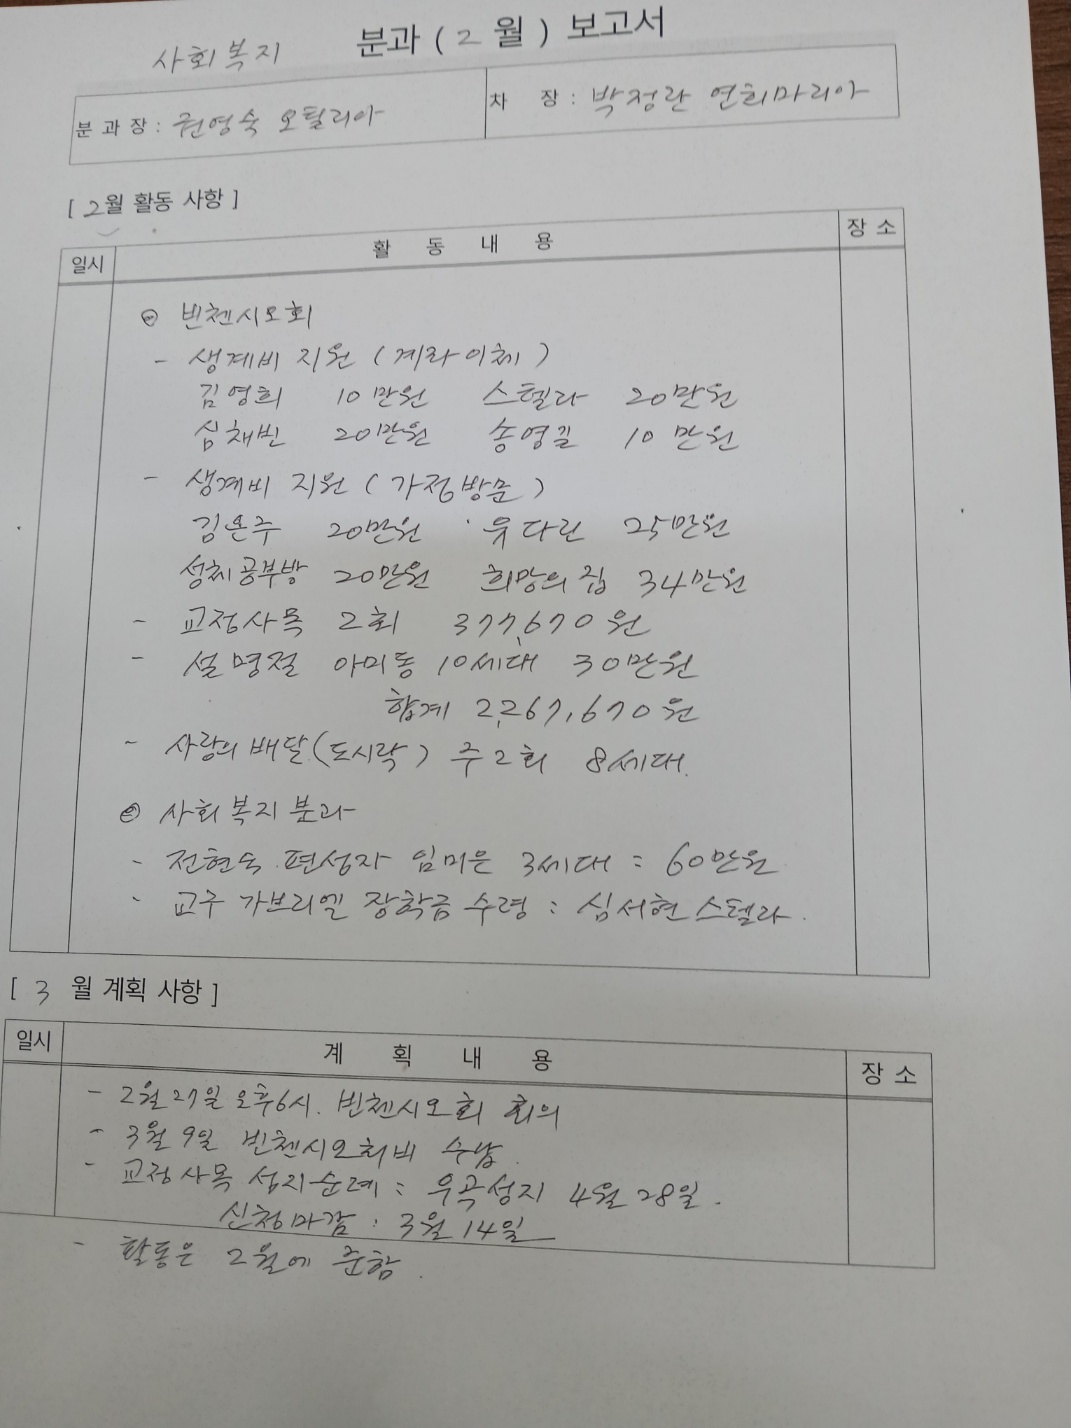 사회복지 분과 ( 2 월 ) 보고서
분 과 장 : 권영숙 오틸리아 차 장 : 박정란 연희마리아
[ 2월 활동 사항 ]
일시 활 동 내 용 장 소
⊙ 빈첸시오회
- 생계비 지원 ( 계좌이체 )
김영희 10만원 스텔라 20만원
심채빈 20만원 송영길 10만원
- 생계비 지원 ( 가정방문 )
김은주 20만원 유다린 25만원
성체공부방 20만원 희망의 집 34만원
- 교정사목 2회 377,670원
- 설 명절 아미동 10세대 30만원
합계 2,267,670원
- 사랑의 배달 (도시락) 주2회 8세대.
⊙ 사회복지분과
- 전현숙 편성자 임미은 3세대 : 60만원
- 교구 가브리엘 장학금 수령 : 심서현 스텔라.
[ 3 월 계획 사항 ]
일시 계 획 내 용 장 소
- 2월 27일 오후6시. 빈첸시오회 회의
- 3월 9일 빈첸시오회비 수납.
- 교정사목 성지순례 : 우곡성지 4월 28일.
신청마감 : 3월 14일
- 활동은 2월에 준함.